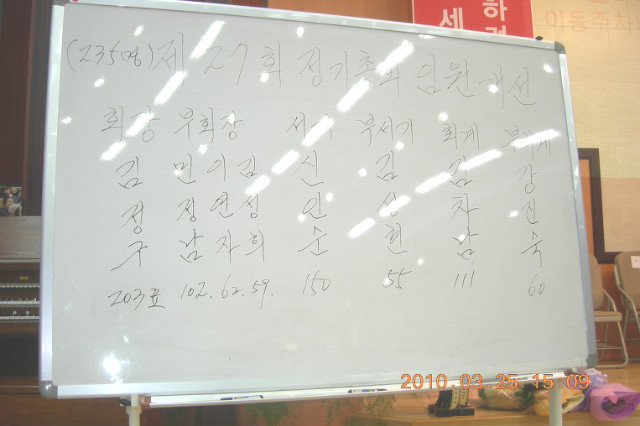 (235명) 제 27회 정기총회 임원개선
회장 부회장 서기 부서기 회계 부회계
김 민 이 김 신 김 김 강
정 정 연 성 인 성 차 진
구 남 자 희 순 현 남 숙
203표 102. 62. 59. 150 55 111 60
2010.03.25 15:09